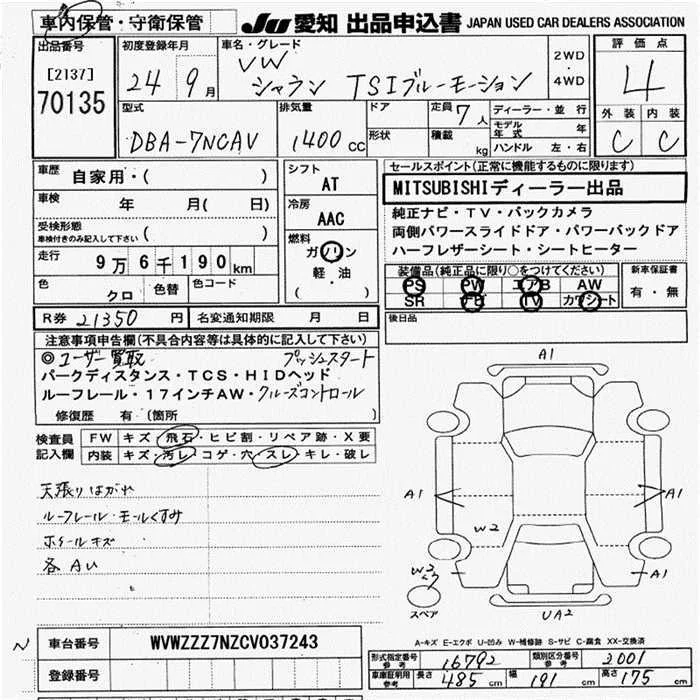 車内保管・守衛保管
JU 愛知 出品申込書 JAPAN USED CAR DEALERS ASSOCIATION
出品番号
[2137]
70135
初度登録年月
24 9月
車名・グレード
VW
シャラン TSIブルーモーション
2WD
・
4WD
評価点
4
外装 内装
C C
型式
DBA-7NCAV
排気量
1400 CC
ドア
形状
定員 7人
積載 kg
ディーラー・並行
モデル年式 年
ハンドル 左・右
車歴
自家用・( )
車検 年 月( 日)
受検形態
車検付きのみ記入して下さい ( )
走行 9万6千190km
色 クロ
色替
色コード
シフト
AT
冷房
AAC
燃料
ガソリン
軽・油
( )
セールスポイント(正常に機能するものに限ります)
MITSUBISHIディーラー出品
純正ナビ・TV・バックカメラ
両側パワースライドドア・パワーバックドア
ハーフレザーシート・シートヒーター
装備品(純正品に限り○をつけてください)
PS PW エアB AW
SR ナビ TV カワシート
新車保証書
有・無
R券 21350円
名変通知期限 月 日
後日品
注意事項申告欄(不具合内容等は具体的に記入して下さい)
◎ユーザー買取 プッシュスタート
パークディスタンス・TCS・HIDヘッド
ルーフレール・17インチAW・クルーズコントロール
修復歴 有・(箇所 )
検査員
記入欄
FW キズ・飛石・ヒビ割・リペア跡・X要
内装 キズ・汚レ・コゲ・穴・スレ・キレ・破レ
天張りはがれ
ルーフレール・モールくすみ
ホイールキズ
各AU
A1
A1
A1
W2
W2
A1
スペア
UA2
A-キズ E-エクボ U-凹み W-補修跡 S-サビ C-腐食 XX-交換済
N
車台番号 WVWZZZ7NZCV037243
登録番号
形式指定番号 参考 16792
類別区分番号 参考 2001
車庫証明用 参考 長さ 485cm 幅 191cm 高さ 175cm